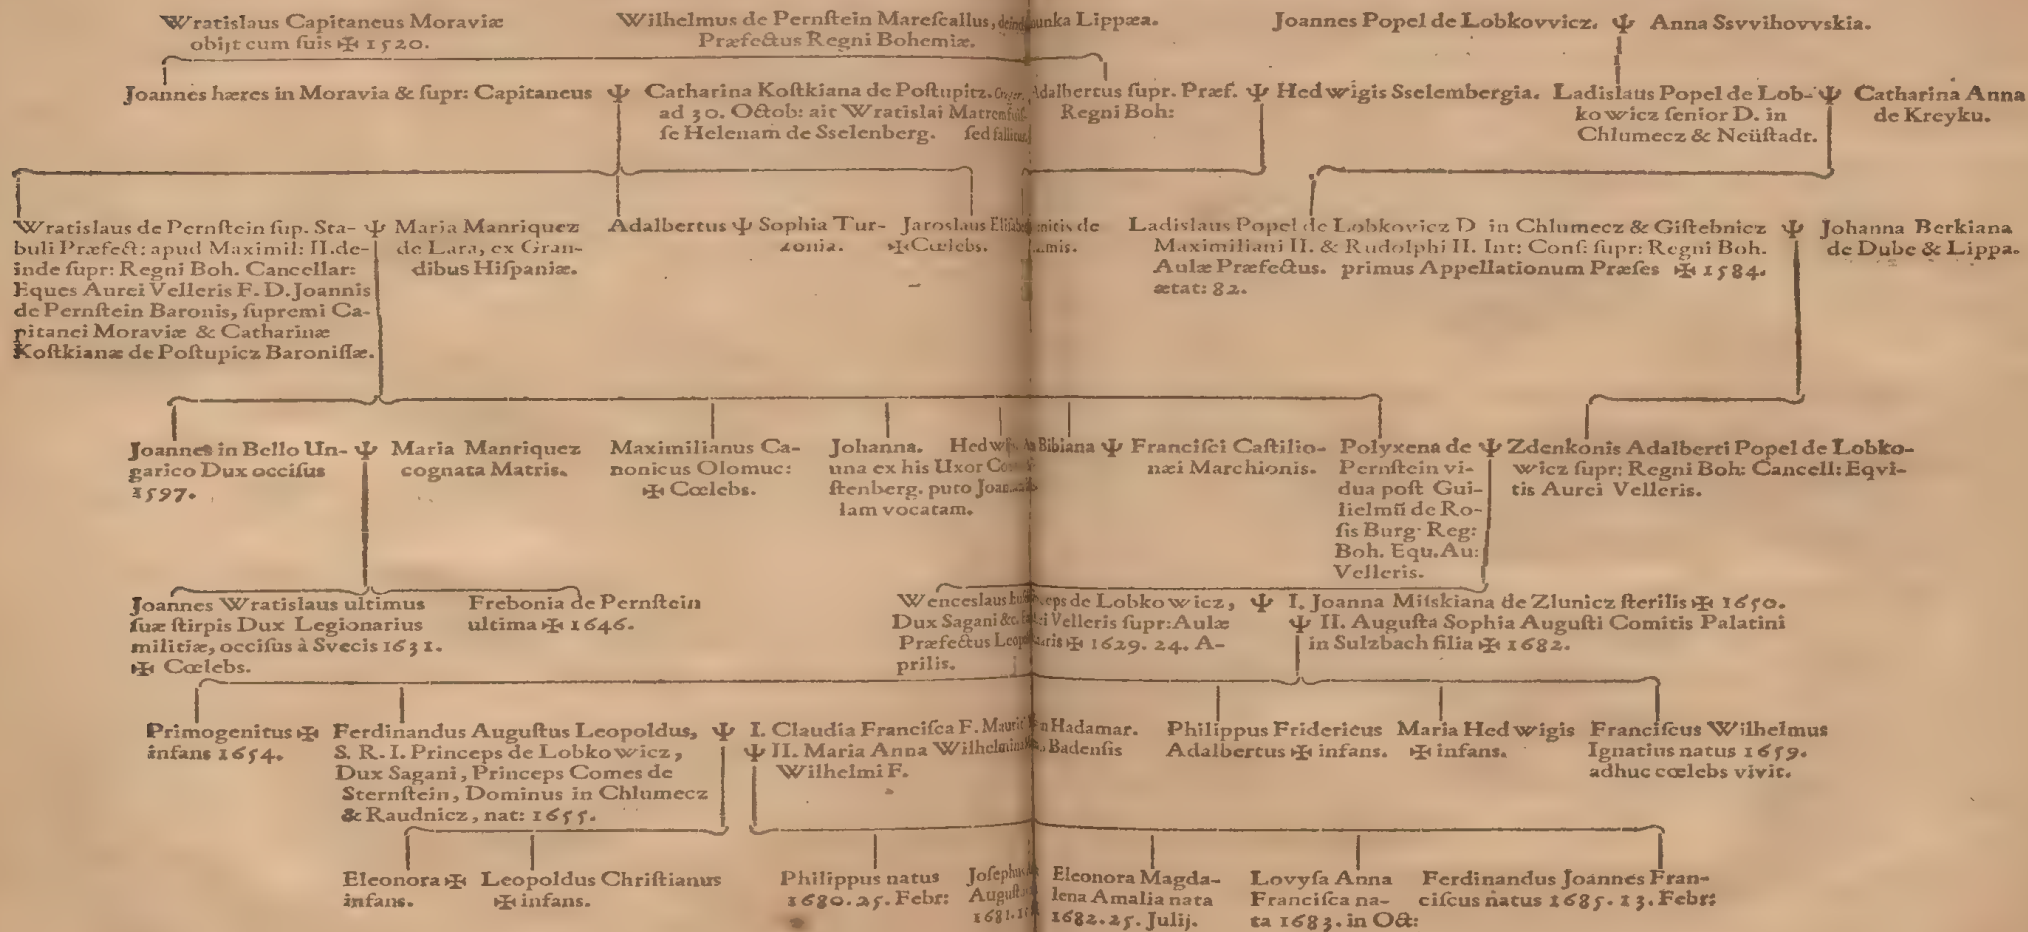 Wratislaus Capitaneus Moraviæ
obijt cum ſuis ✠ 1520.
Wilhelmus de Pernſtein Mareſcallus, deind
Præfectus Regni Bohemiæ.
unka Lippæa.
Joannes Popel de Lobkovvicz. Ψ Anna Ssvvihovvskia.
Joannes hæres in Moravia & ſupr: Capitaneus Ψ
Catharina Koſtkiana de Poſtupitz.
ad 30. Octob: ait Wratislai Matrem
ſe Helenam de Sselenberg. ſed fallitur
Adalbertus ſupr. Præf. Ψ Hedwigis Sselembergia.
Regni Boh:
Ladislaus Popel de Lob- Ψ
kowicz ſenior D. in
Chlumecz & Neüſtadt.
Catharina Anna
de Kreyku.
Wratislaus de Pernſtein ſup. Sta- Ψ
buli Præfect: apud Maximil: II. de-
inde ſupr: Regni Boh. Cancellar:
Eques Aurei Velleris F. D. Joannis
de Pernſtein Baronis, ſupremi Ca-
pitanei Moraviæ & Catharinæ
Koſtkianæ de Poſtupicz Baroniſſæ.
Maria Manriquez
de Lara, ex Gran-
dibus Hiſpaniæ.
Adalbertus Ψ Sophia Tur-
zonia.
Jaroslaus
✠ Cœlebs.
mitis de
Ladislaus Popel de Lobkovicz D in Chlumecz & Giſtebnicz Ψ
Maximiliani II. & Rudolphi II. Int: Conſ: ſupr: Regni Boh.
Aulæ Præfectus. primus Appellationum Præſes ✠ 1584.
ætat: 82.
Johanna Berkiana
de Dube & Lippa.
Joannes in Bello Un- Ψ
garico Dux occiſus
1597.
Maria Manriquez
cognata Matris.
Maximilianus Ca-
nonicus Olomuc:
✠ Cœlebs.
Johanna. Hedwi
una ex his Uxor
ſtenberg. puto
lam vocatam.
Bibiana Ψ Franciſci Caſtilio-
næi Marchionis.
Polyxena de Ψ
Pernſtein vi-
dua poſt Gui-
lielmũ de Ro-
ſis Burg: Reg:
Boh. Equ. Au:
Velleris.
Zdenkonis Adalberti Popel de Lobko-
wicz ſupr: Regni Boh: Cancell: Eqvi-
tis Aurei Velleris.
Joannes Wratislaus ultimus
ſuæ ſtirpis Dux Legionarius
militiæ, occiſus à Svecis 1631.
✠ Cœlebs.
Frebonia de Pernſtein
ultima ✠ 1646.
Wenceslaus ceps de Lobkowicz, Ψ
Dux Sagani &c. Velleris ſupr: Aulæ
Præfectus ✠ 1629. 24. A-
prilis.
I. Joanna Mitskiana de Zlunicz ſterilis ✠ 1650.
Ψ II. Auguſta Sophia Auguſti Comitis Palatini
in Sulzbach filia ✠ 1682.
Primogenitus ✠
infans 1654.
Ferdinandus Auguſtus Leopoldus, Ψ
S. R. I. Princeps de Lobkowicz,
Dux Sagani, Princeps Comes de
Sternſtein, Dominus in Chlumecz
& Raudnicz, nat: 1655.
I. Claudia Franciſca F. Maurit n Hadamar.
Ψ II. Maria Anna Wilhelmina Badenſis
Wilhelmi F.
Philippus Fridericus
Adalbertus ✠ infans.
Maria Hedwigis
✠ infans.
Franciſcus Wilhelmus
Ignatius natus 1659.
adhuc cœlebs vivit.
Eleonora ✠
infans.
Leopoldus Chriſtianus
✠ infans.
Philippus natus
1680. 25. Febr:
Joſephus
Auguſt
1681.
Eleonora Magda-
lena Amalia nata
1682. 25. Julij.
Lovyſa Anna
Franciſca na-
ta 1683. in Oct:
Ferdinandus Joannes Fran-
ciſcus natus 1685. 13. Febr: